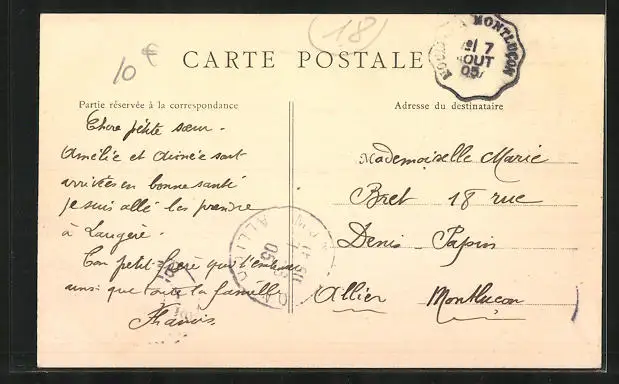 (18)
10 €
CARTE POSTALE
MONTLUÇON
7
AOUT
05
Partie réservée à la correspondance
Adresse du destinataire
Chère petite sœur.
Amélie et Aimée sont
arrivées en bonne santé
je suis allé les prendre
à
Ton petit frère qui t'embrasse
ainsi que toute la famille
Francis.
Mademoiselle Marie
Bret 18 rue
Denis Papin
Allier Montluçon
ALLIER
05